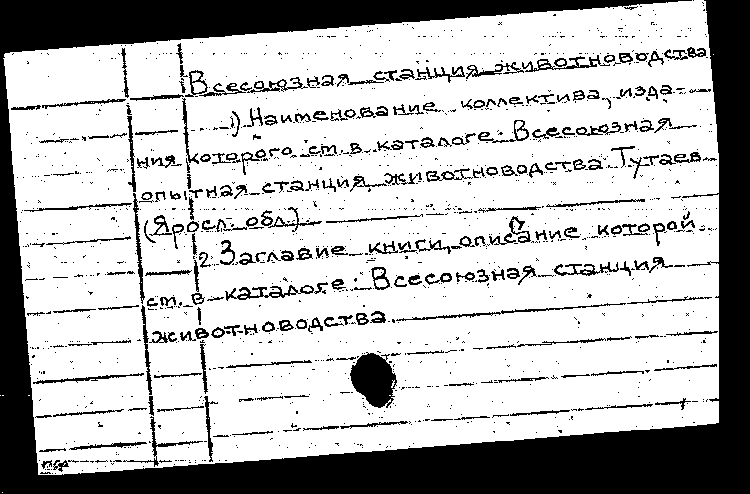 Всесоюзная станция животноводства
1) Наименование коллектива, изда-
ния которого см. в каталоге: Всесоюзная
опытная станция животноводства. Тутаев
(Яросл. обл.)
2 Заглавие книги, описание которой
см. в каталоге: Всесоюзная станция
животноводства.